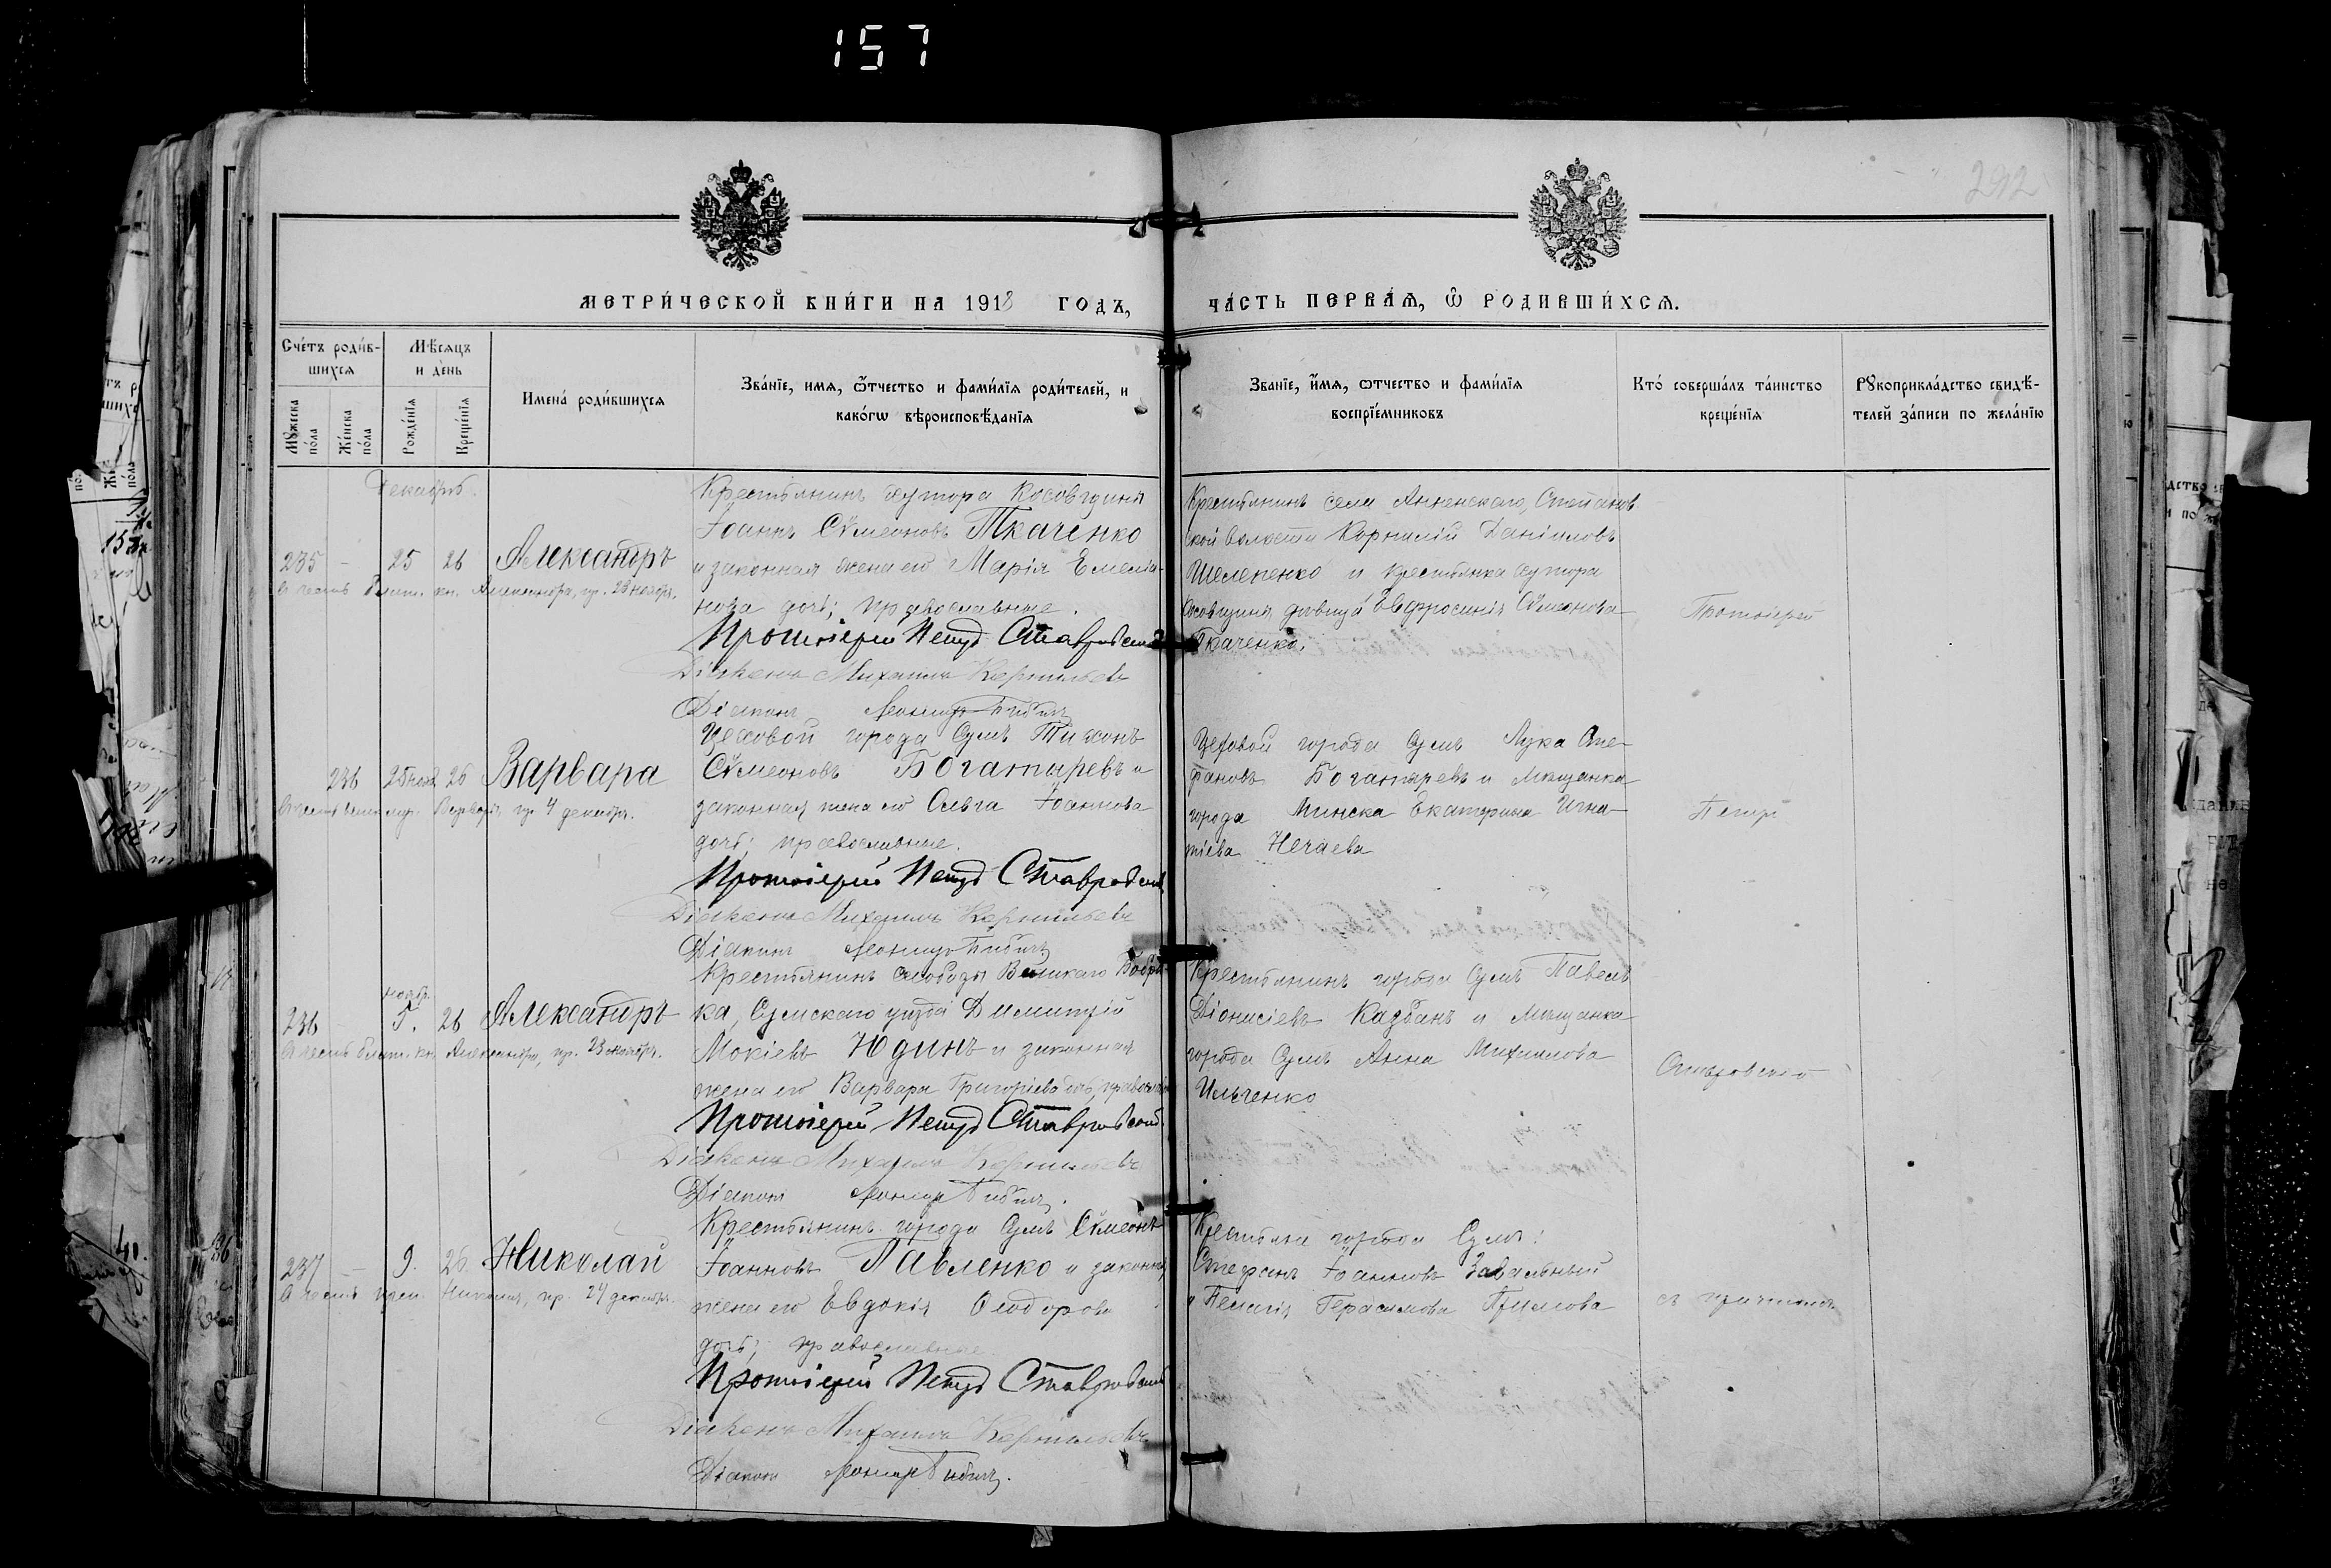 157
292
МЕТРИ́ЧЕСКОЙ КНИ́ГИ НА 1918 ГОДЪ,
ЧА́СТЬ ПЕРВА́Я, Ѡ҆ РОДИВШИ́ХСЯ.
Сче́тъ роди́в-
шихся
Мѣ́сяцъ
и де́нь
Мꙋ́жеска
по́ла
Же́нска
по́ла
Рожде́нїѧ
Креще́нїѧ
Имена́ роди́вшихся
Зва́нїе, имя, ѻ́тчество и фами́лїя роди́телей, и
како́гѡ вѣроисповѣ́данїя
Зва́нїе, и́мя, ѻтчество и фами́лїя
воспрїе́мниковъ
Кто́ соверша́лъ та́инство
креще́нїя
Рꙋкоприкла́дство свидѣ́-
телей за́писи по жела́нїю
Декабрь.
235 - 25 26 Александръ
въ честь благ. кн. Александра, пр. 23 ноября.
Крестьянинъ хутора Косовщина
Іоаннъ Сѵмеоновъ Ткаченко
и законная жена его Марія Емелiа-
нова дочь; православные.
Протоіерей Петръ
Діаконъ Михаилъ Корнильевъ
Діаконъ Леонидъ
Крестьянинъ села Анненскаго, Степанов-
ской волости Корнилій Даніиловъ
Шелепенко и крестьянка хутора
Косовщина дѣвица Евфросинія Сѵмеонова
Ткаченко.
Протоіерей
236 25 нояб 26 Варвара
въ честь велик. муч. Варвары, пр. 4 декабря.
Цеховой города Сумъ Тихонъ
Сѵмеоновъ Богатыревъ и
законная жена его Ольга Іоаннова
дочь; православные.
Протоіерей Петръ
Діаконъ Михаилъ Корнильевъ
Діаконъ Леонидъ
Цеховой города Сумъ Лука Сте-
фановъ Богатыревъ и мѣщанка
города Минска Екатерина Игна-
тіева Нечаева
Петръ
236 ноябр. 5. 26 Александръ
въ честь благ. кн. Александра, пр. 23 ноября.
Крестьянинъ слободы Великаго Бобри-
ка, Сумскаго уѣзда Димитрій
Мокіевъ Юдинъ и законная
жена его Варвара Григоріева дочь,
Протоіерей Петръ
Діаконъ Михаилъ Корнильевъ
Діаконъ Леонидъ
Крестьянинъ города Сумъ Павелъ
Діонисіевъ Казбанъ и мѣщанка
города Сумъ Анна Михаилова
Ильченко
237 - 9. 26. Николай
въ честь Николая, пр. 24 декабря.
Крестьянинъ города Сумъ Сѵмеонъ
Іоанновъ Павленко и законная
жена его Евдокія Ѳеодорова
дочь; православные.
Протоіерей Петръ
Діаконъ Михаилъ Корнильевъ
Діаконъ Леонидъ
Крестьяне города Сумъ:
Стефанъ Іоанновъ Завальный
и Пелагія Герасимова
съ причтомъ